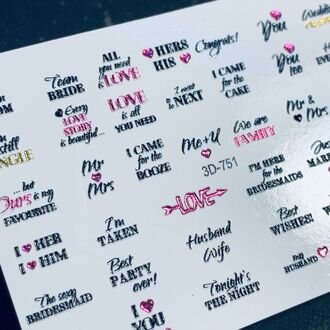 ALL
you need
is LOVE
HERS
HIS
Congrats!
You
Team
BRIDE
Every
LOVE
STORY
is beautiful...
LOVE
is all
YOU NEED
I want
to be
NEXT
I CAME
for the
CAKE
You
Mr &
still
Mr
Mrs
I CAME
for the
BOOZE
Me + U
3D-751
We are
FAMILY
... but
Ours is my
FAVOURITE
I'M HERE
for the
BRIDESMAIDS
I'm
TAKEN
LOVE
I HER
I HIM
Husband
Wife
Best
WISHES!
my
HUSBAND
Best
PARTY
ever!
The sexy
BRIDESMAID
Tonight's
THE NIGHT
I
YOU